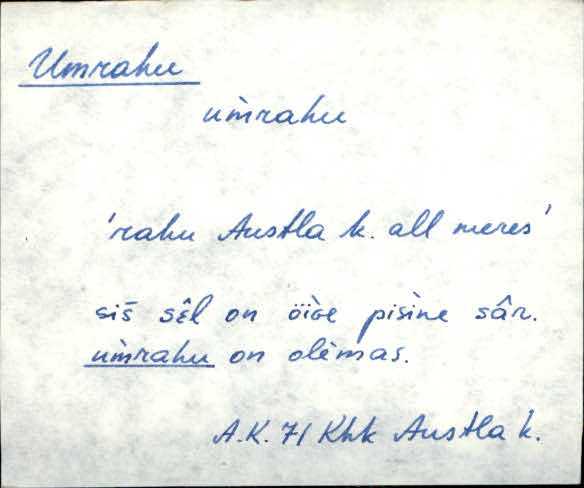 Umrahu
um̀rahu
'rahu Austla k. all meres'
siš sêl on öìʋe pisìne sâr.
um̀rahu on olèmas.
A.K. 71 Khk Austla k.